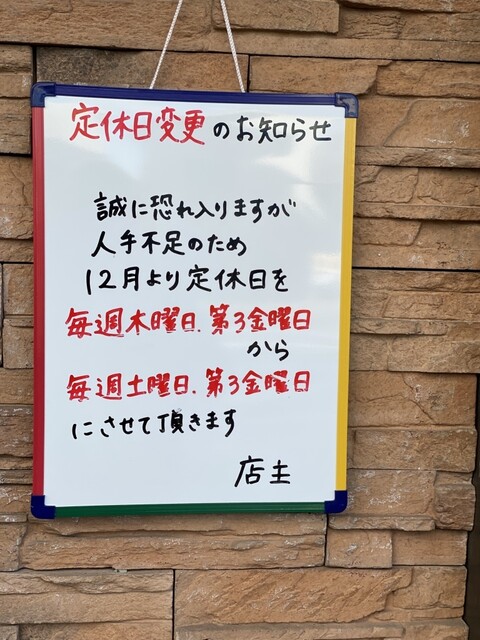 定休日変更のお知らせ
誠に恐れ入りますが
人手不足のため
12月より定休日を
毎週木曜日.第3金曜日
から
毎週土曜日.第3金曜日
にさせて頂きます
店主